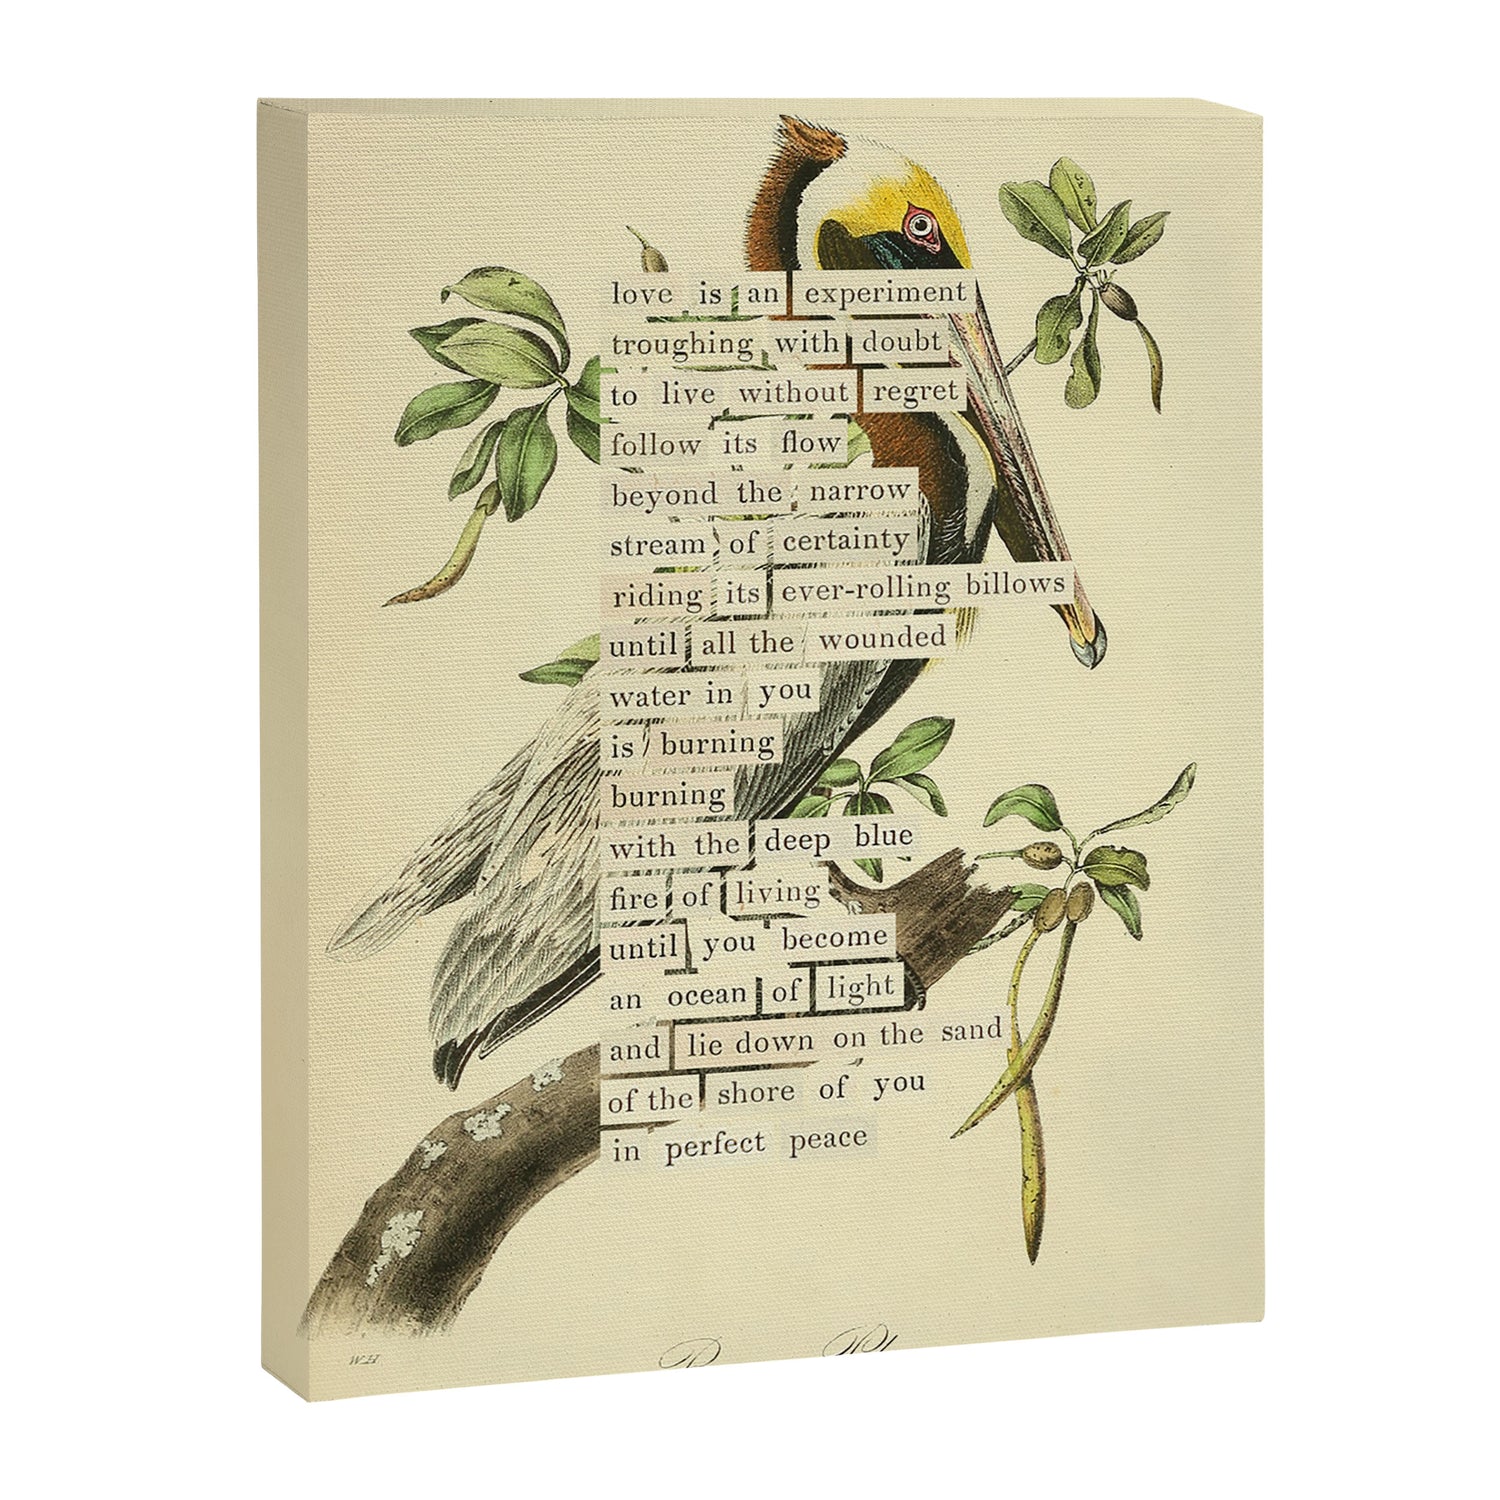 love is an experiment
troughing with doubt
to live without regret
follow its flow
beyond the narrow
stream of certainty
riding its ever-rolling billows
until all the wounded
water in you
is burning
burning
with the deep blue
fire of living
until you become
an ocean of light
and lie down on the sand
of the shore of you
in perfect peace